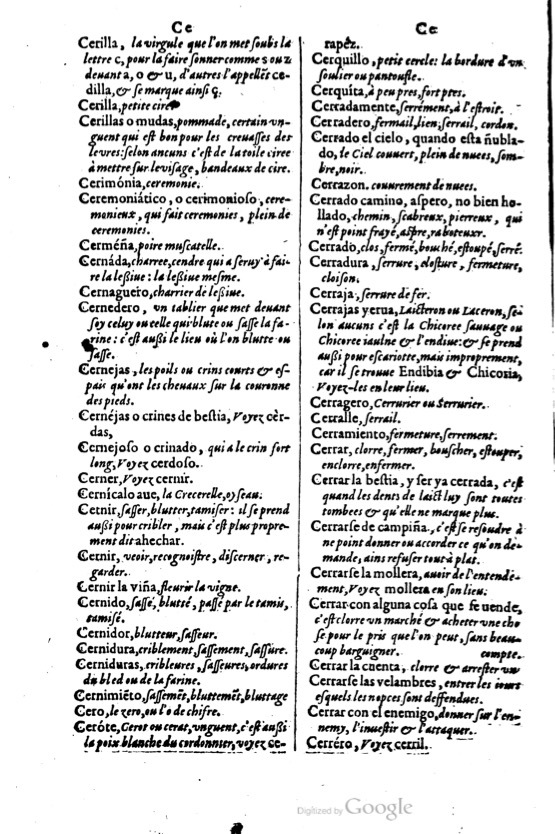 Ce
Cerilla, la virgule que l'on met soubs la
lettre c, pour la faire sonner comme s ou z
deuant a, o & u, d'autres l'appellẽt ce-
dilla, & se marque ainsi ç.
Cerilla, petite cire
Cerillas o mudas, pommade, certain vn-
guent qui est bon pour les creuasses des
leures: selon ancuns c'est de la toile ciree
à mettre sur le visage, bandeaux de cire.
Cerimónia, ceremonie.
Ceremoniático, o cerimonioso, cere-
monieux, qui fait ceremonies, plein de
ceremonies.
Cerméña, poire muscatelle.
Cernáda, charree, cendre qui a seruy à fai-
re la leßiue: la leßiue mesme.
Cernaguero, charrier de leßiue.
Cernedero, vn tablier que met deuant
soy celuy ou celle qui blute ou sasse la fa-
rine: c'est außi le lieu où l'on blutte ou
sasse.
Cernejas, les poils ou crins courts & es-
pais qu'ont les cheuaux sur la couronne
des pieds.
Cernéjas o crines de bestia, Voyez cèr-
das,
Cernejoso o crinado, qui a le crin fort
long, Voyez cerdoso.
Cerner, Voyez cernir.
Cernícalo aue, la Crecerelle, oyseau.
Cernir, sasser, blutter, tamiser: il se prend
außi pour cribler, mais c'est plus propre-
ment dit ahechar.
Cernir, veoir, recognoistre, discerner, re-
garder.
Cernir la viña, fleurir la vigne.
Cernido, sassé, blutté, passé par le tamis,
tamisé.
Cernidor, blutteur, sasseur.
Cernidura, criblement, sassement, sassure.
Cerniduras, cribleures, sasseures, ordures
du bled ou de la farine.
Cernimiẽto, sassemẽt, bluttemẽt, bluttage
Cero, le zero, ou l'o de chifre.
Ceróte, Cerot ou cerat, vnguent, c'est außi
la poix blanche du cordonnier, voyez ce-
Ce
rapéz.
Cerquillo, petit cercle: la bordure d'vn
soulier ou pantoufle.
Cerquita, à peu pres, fort pres.
Cerradamente, serrément, à l'estroit.
Cerradero, fermail, lien; serrail, cordon.
Cerrado el cielo, quando esta ñubla-
do, le Ciel couuert, plein de nuees, som-
bre, noir.
Cerrazon. couurement de nuees.
Cerrado camino, aspero, no bien ho-
llado, chemin, scabreux, pierreux, qui
n'est point frayé, aspre, raboteuxr.
Cerrado, clos, fermé, bouché, estoupé, serré.
Cerradura, serrure, closture, fermeture,
cloison.
Cerraja, serrure de fer.
Cerrajas yerua, Laicteron ou Laceron, se-
lon aucuns c'est la Chicoree sauuage ou
Chicoree iaulne & l'endiue: & se prend
außi pour escariotte, mais improprement,
car il se trouue Endibia & Chicoria,
Voyez-les en leur lieu.
Cerragero, Cerrurier ou Serrurier.
Cerralle, serrail.
Cerramiento, fermeture, serrement.
Cerrar, clorre, fermer, bouscher, estouper,
enclorre, enfermer.
Cerrar la bestia, y ser ya cerrada, c'est
quand les dents de laict luy sont toutes
tombees & qu'elle ne marque plus.
Cerrarse de campiña, c'est se resoudre à
ne point donner ou accorder ce qu'on de-
mande, ains refuser tout à plat.
Cerrarse la mollera, auoir de l'entende-
ment, Voyez mollera en son lieu.
Cerrar con alguna cosa que se uende,
c'est clorre vn marché & acheter vne cho
se pour le pris que l'on peut, sans beau-
coup barguigner. compte.
Cerrar la cuenta, clorre & arrester vn
Cerrarse las velambres, entrer les iours
esquels les nopces sont deffendues.
Cerrar con el enemigo, donner sur l'en-
nemy, l'inuestir & l'attaquer.
Cerréro, Voyez cerril.
Digitized by Google